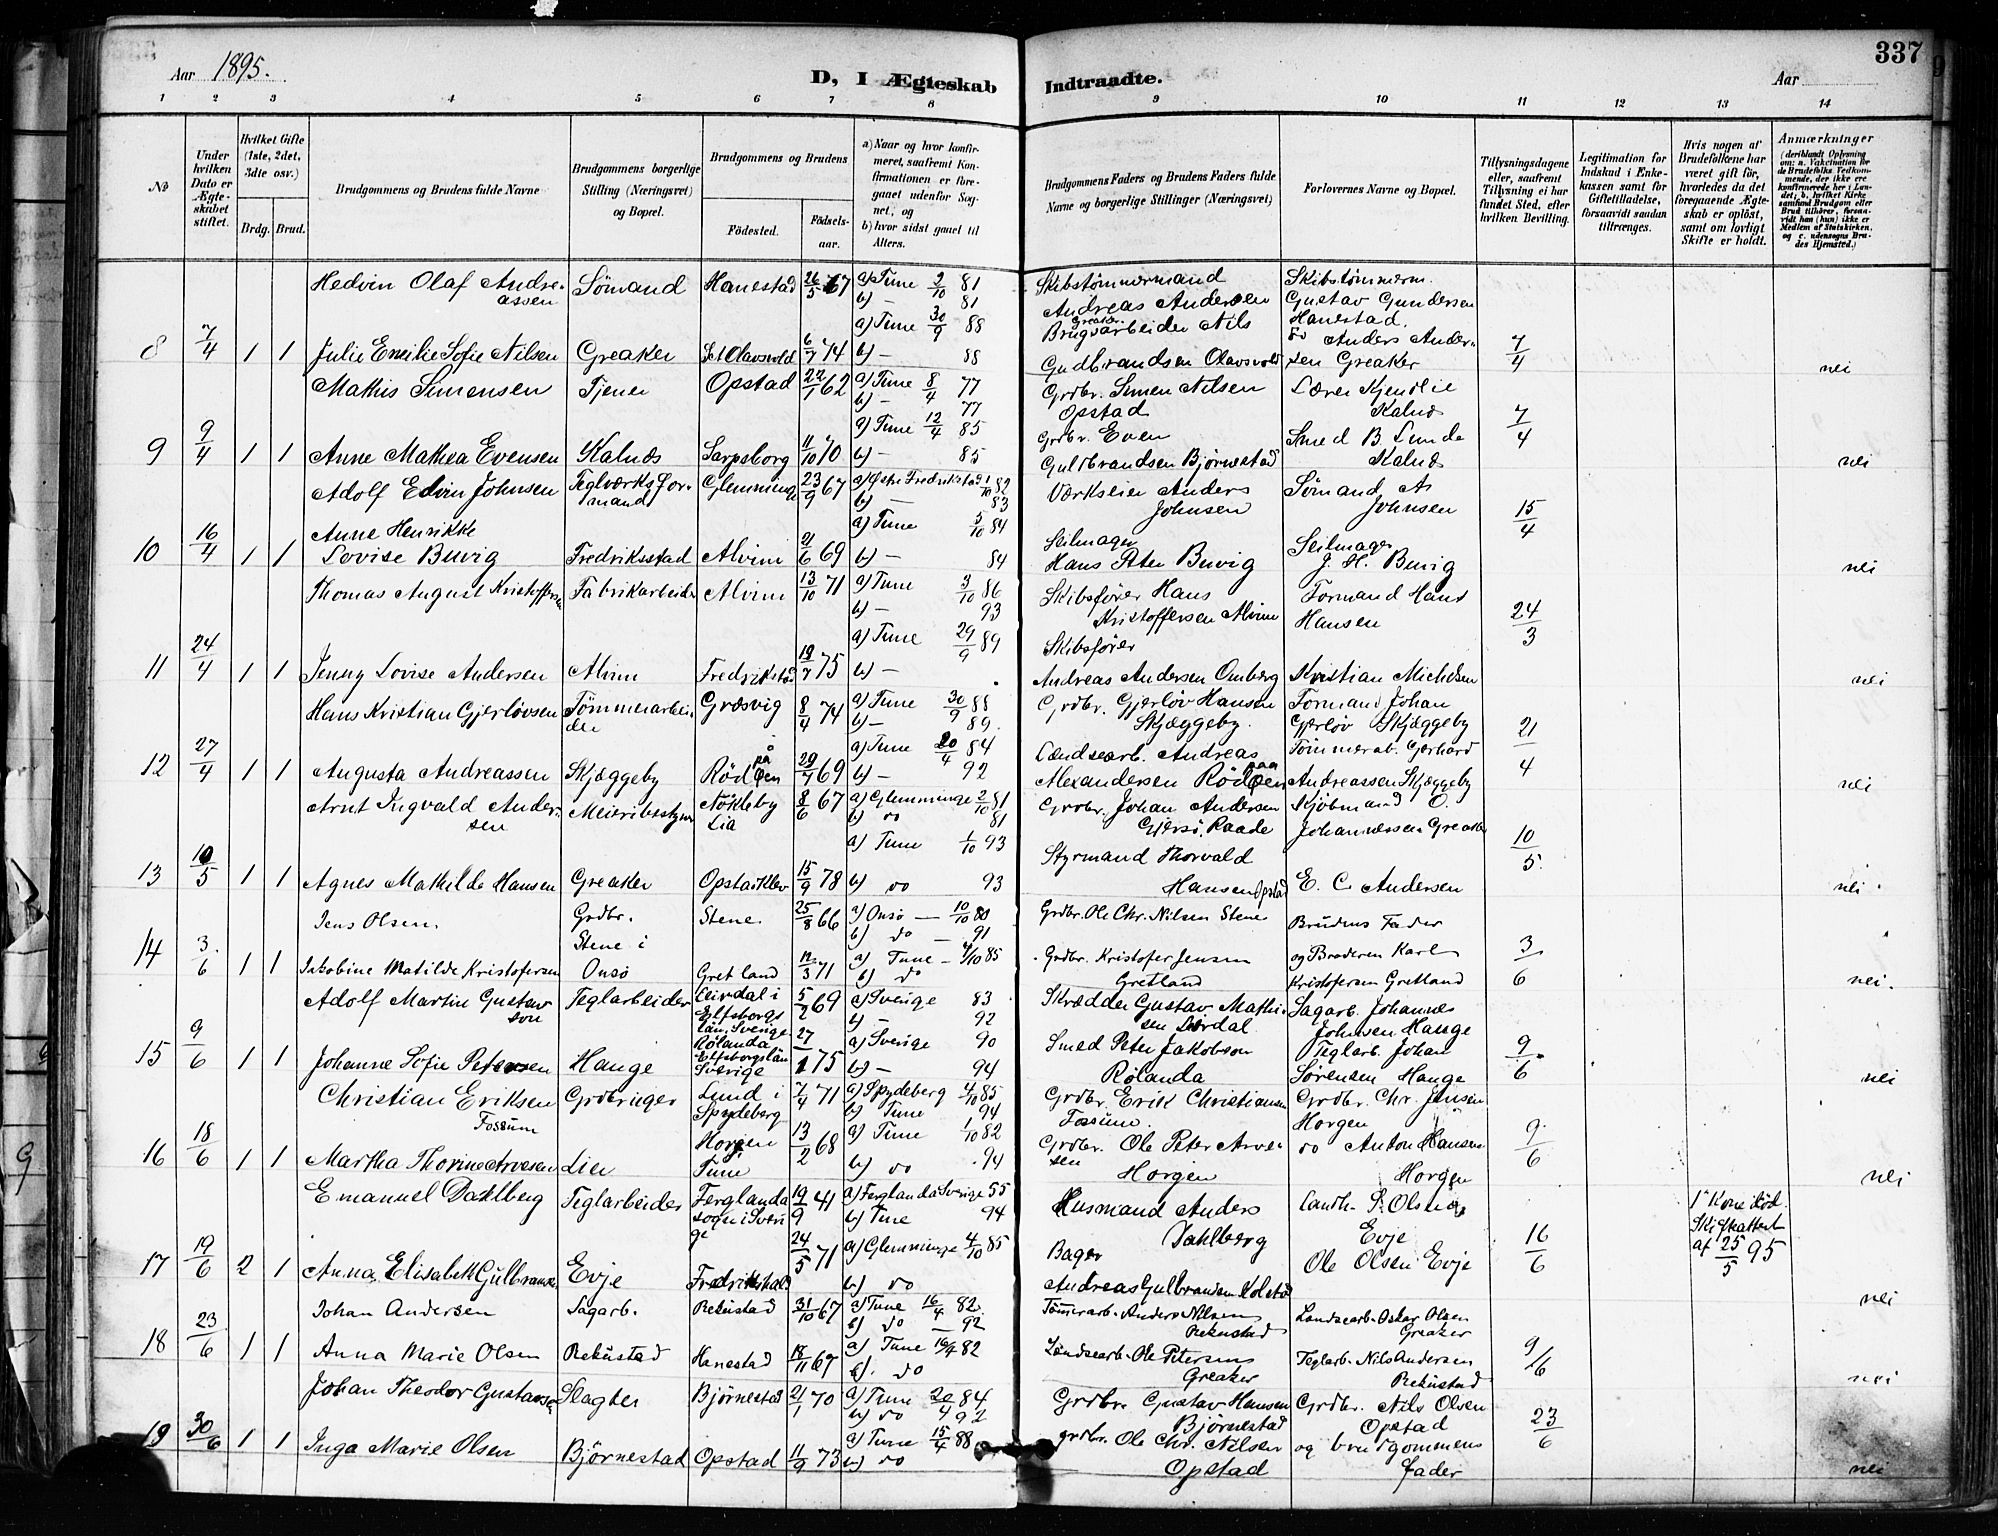 Aar 1895.
D, I Ægteskab Indtraadte.
Aar
337
1 2 3 4 5 6 7 8 9 10 11 12 13 14
No
Under hvilken Dato er Ægteskabet stiftet.
Hvilket Gifte (1ste, 2det, 3dte osv.)
Brdg. Brud.
Brudgommens og Brudens fulde Navne
Brudgommens borgerlige Stilling (Næringsvei) og Bopæl.
Brudgommens og Brudens
Fødested.
Fødsels-aar.
a) Naar og hvor konfirmeret, saafremt Konfirmationen er foregaaet udenfor Sognet, og
b) hvor sidst gaaet til Alters.
Brudgommens Faders og Brudens Faders fulde Navne og borgerlige Stillinger (Næringsvei)
Forlovernes Navne og Bopæl.
Tillysningsdagene eller, saafremt Tillysning ei har fundet Sted, efter hvilken Bevilling.
Legitimation for Indskud i Enkekassen samt for Giftetilladelse, forsaavidt saadan tiltrænges.
Hvis nogen af Brudefolkene har været gift før, hvorledes da det foregaaende Ægteskab er opløst, samt om lovligt Skifte er holdt.
Anmærkninger
(deriblandt Oplysning om: a. Vakcination for de Brudefolks Vedkommende, der ikke ere konfirmerede her i Landet; b. hvilket Kirkesamfund Brudgom eller Brud tilhører, forsaavidt han (hun) ikke er Medlem af Statskirken, og c. udensogns Brudes Hjemsted.)
Hedvin Olaf Andreassen Sömand Hanestad 26/5 67 a) Tune 2/10 81 b) - 81 Skibstømmermand Andreas Andersen Greaker Skibstømmerm. Gustav Gundersen Hanestad.
8 7/4 1 1 Julie Emilie Sofie Nilsen Greaker St. Olavsvold 6/7 74 a) Tune 30/9 88 b) - 88 Brugsarbeider Nils Gudbrandsen Olavsvold do Anders Andersen Greaker 7/4 nei
Mathis Simensen Tjener Opstad 22/1 62 a) Tune 8/4 77 b) - 77 Grdbr. Simen Nilsen Opstad Lærer Kjendlie Kalnæs
9 9/4 1 1 Anne Mathea Evensen Kalnæs Sarpsborg 11/10 70 a) Tune 12/4 85 b) - 85 Grdbr. Even Guldbrandsen Bjørnestad Smed B. Lunde Kalnæs 7/4 nei
Adolf Edvin Johnsen Teglværksformand Glemminge 23/9 67 a) Østre Fredrikstad 1/10 82 b) - 83 Værkseier Anders Johnsen Sømand A Johnsen
10 16/4 1 1 Anne Henrikke Lovise Buvig Fredriksstad Alvim 21/6 69 a) Tune 5/10 84 b) - 84 Seilmager Hans Peter Buvig Seilmager J. H. Buvig 15/4 nei
Thomas August Kristoffersen Fabrikarbeider Alvim 13/10 71 a) Tune 3/10 86 b) - 93 Skibsfører Hans Kristoffersen Alvim Formand Hans Hansen
11 24/4 1 1 Jenny Lovise Andersen Alvim Fredrikstad 19/7 75 a) Tune 29/9 89 b) - Skibsfører Andreas Andersen Omberg Kristian Michelsen 24/3 nei
Hans Kristian Gjerløvsen Tømmerarbeider Græsvig 8/4 74 a) Tune 30/9 88 b) - 89. Grdbr. Gjerløv Hansen Skjæggeby. Formand Johan Gjerløv Skjæggeby
12 27/4 1 1 Augusta Andreassen Skjæggeby Rød på Øen 29/7 69 a) Tune 20/4 84 b) - 92 Landsearb. Andreas Alexandersen Rød paa Øen Tømmerab. Gerhard Andreassen Skjæggeby 21/4 nei
Arnt Ingvald Andersen Meieribestyrer Nökleby Lia 8/6 67 a) Glemminge 2/10 81 b) do 81 Grdbr. Johan Andersen Gjersø. Raade Kjøbmand O. Johannessen Greaker
13 10/5 1 1 Agnes Mathilde Hansen Greaker Opstadklev 15/9 78 a) Tune 1/10 93 b) do 93 Styrmand Thorvald Hansen Opstad E. C. Andersen 10/5 nei
Jens Olsen. Grdbr. Stene i Stene. 25/8 66 a) Onsö - 10/10 80 b) do - 91 Grdbr. Ole Chr. Nilsen Stene Brudens Fader
14 3/6 1 1 Jakobine Matilde Kristofersen Onsö Gretland 12/3 71 a) Tune - 4/10 85 b) do Grdbr. Kristofer Jensen Gretland og Broderen Karl Kristofersen Gretland 3/6 nei.
Adolf Martin Gustavson Teglarbeider Elfsborgs län, Sverige 5/2 69 a) Sverige 83 b) - 92 Skrædder Gustav Mathisen Sagarb. Johannes Johnsen Hauge
15 9/6 1 1 Johanne Sofie Petersen Hauge Rølanda Elfsborgslän Sverige 27/1 75 a) Sverige 90 b) - 94 Smed Peter Jakobson Rølanda Teglarb. Johan Sørensen Hauge 9/6 nei
Christian Eriksen Fossum Grdbruger Lund i Spydeberg 7/4 71 a) Spydeberg 4/10 85 b) Tune 94 Grdbr. Erik Christiansen Fossum. Grdbr. Chr. Jensen Horgen
16 18/6 1 1 Martha Thorine Arvesen Lier Horgen i Tune 13/2 68 a) Tune 1/10 82 b) do 94 Grdbr. Ole Peter Arvesen Horgen do Anton Hansen Horgen 9/6 nei
Emanuel Dahlberg Teglarbeider Ferglanda sogn i Sverige 19/9 41 a) Ferglanda Sverige 55 b) Tune 94 Husmand Anders Dahlberg Landh. S. Olsen Evje 1ste Kone død. Skifteattest af 25/5 95
17 19/6 2 1 Anna Elisabeth Gulbransen Evje Fredrikshald 24/5 71 a) Glemminge 4/10 85 b) do Bager Andreas Gulbrandsen Kolstad Ole Olsen Evje 16/6 nei
Johan Andersen Sagarb. Rekustad 31/10 67 a) Tune 16/4 82. b) do - 92 Tömmerarb. Anders Nilsen Rekustad Landsearb. Oskar Olsen Greaker
18 23/6 1 1 Anna Marie Olsen Rekustad Hanestad 18/11 67 a) Tune 16/4 82 b). do Landsearb. Ole Petersen Greaker Teglarb. Nils Andersen Rekustad 9/6 nei
Johan Theodor Gustavsen Slagter Bjørnestad 21/1 70 a) Tune 20/4 84 b) do 92 Grdbr. Gustav Hansen Bjørnestad Grdbr. Nils Olsen Opstad
19 30/6 1 1 Inga Marie Olsen Bjørnestad Opstad 11/9 73 a) Tune 15/4 88 b) do grdbr. Ole Chr. Nilsen Opstad og brudgommens Fader 23/6 nei